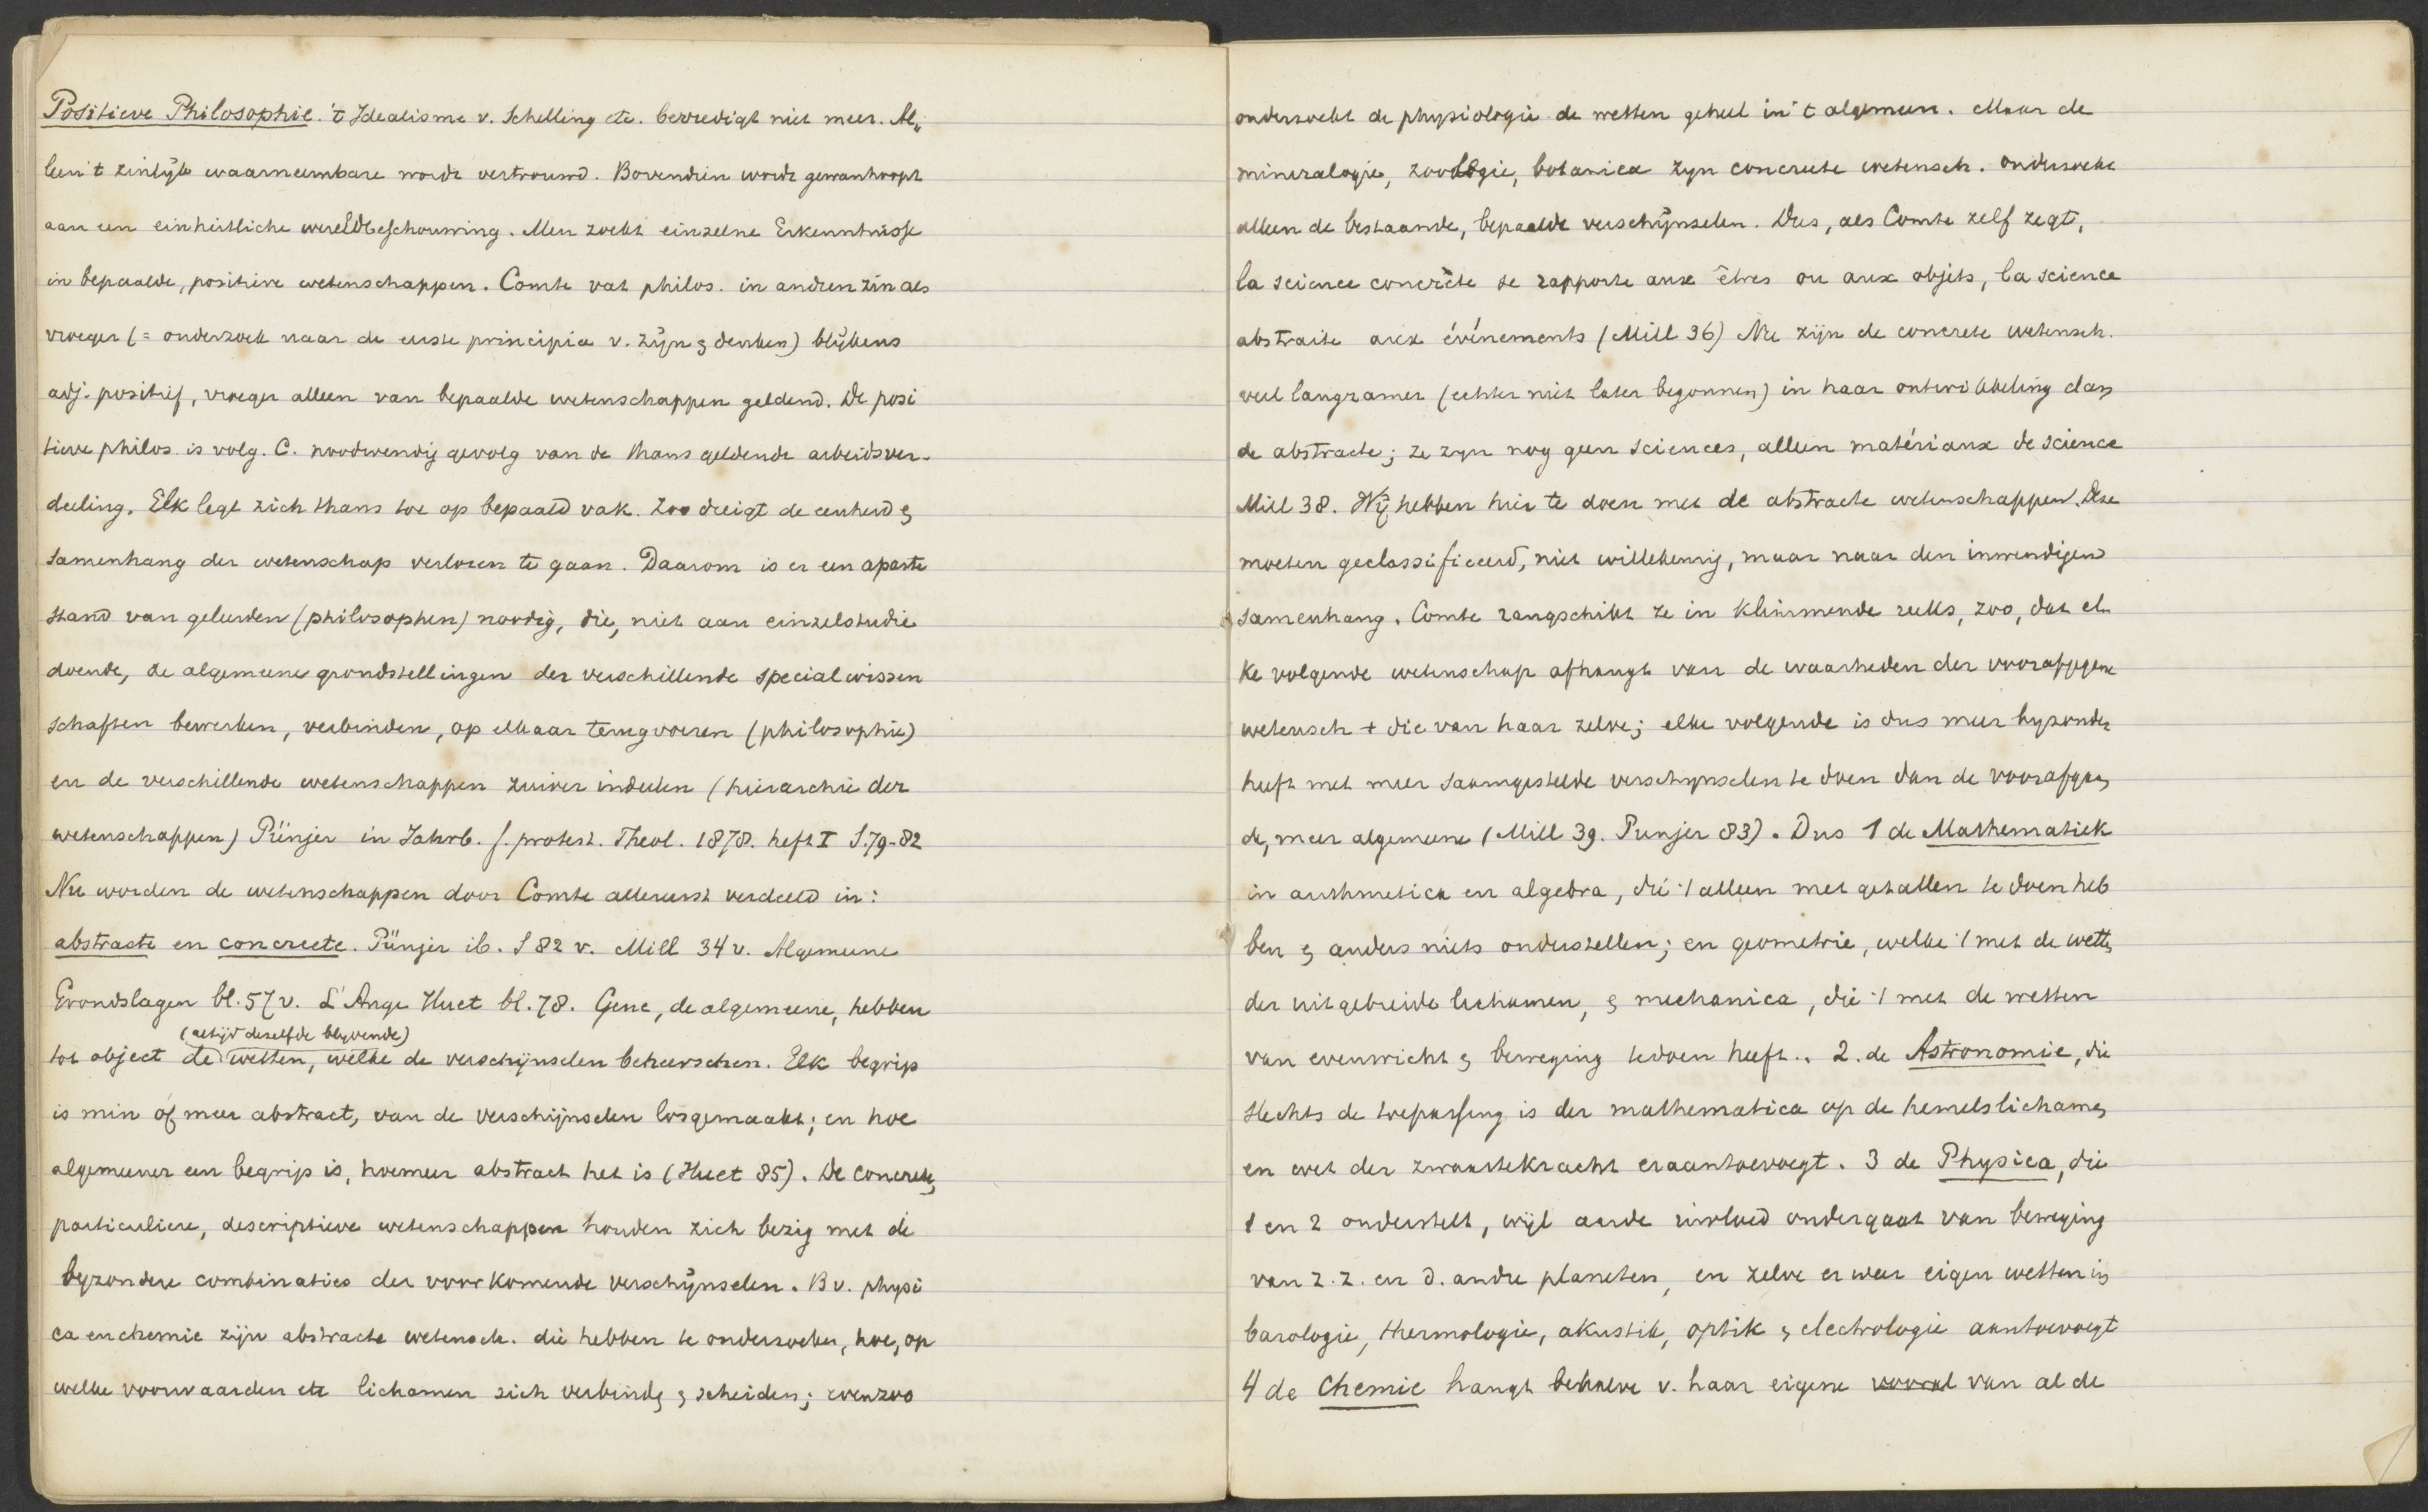 Positieve Philosophie. 't Idealisme v. Schelling etc. bevredigt niet meer. Al„
leen 't zinlijk waarneembare wordt vertrouwd. Bovendien wordt gewanhoopt
aan een einheitliche wereldbeschouwing. Men zoekt einzelne Erkenntnisse
in bepaalde, positive wetenschappen. Comte vat philos. in andren zin als
vroeger (= onderzoek naar de eerste principia v. zijn & denken) blijkens
adj. positief, vroeger alleen van bepaalde wetenschappen geldend. De posi
tieve philos. is volg. C. noodwendig gevolg van de thans geldende arbeidsver-
deeling. Elk legt zich thans toe op bepaald vak. Zoo dreigt de eenheid &
samenhang der wetenschap verloren te gaan. Daarom is er een aparte
stand van geleerden (philosophen) noodig, die, niet aan einzelstudie
doende, de algemeene grondstellingen der verschillende specialwissen
schaften bewerken, verbinden, op elkaar terugvoeren (philosophie)
en de verschillende wetenschappen zuiver indeelen (hierarchie der
wetenschappen) Pünjer in Jahrb. f. protest. Theol. 1878. heft I S. 79-82
Nu worden de wetenschappen door Comte allereerst verdeeld in:
abstracte en concreete. Pünjer ib. S 82 v. Mill 34 v. Algemeene
Grondslagen bl. 57 v. L'Ange Huet bl. 78. Gene, de algemeene, hebben
(altijd dezelfde blyvende)
tot object de wetten, welke de verschijnselen beheerschen. Elk begrip
is min of meer abstract, van de verschijnselen losgemaakt; en hoe
algemeener een begrip is, hoemeer abstract het is (Huet 85). De concrete,
particuliere, descriptieve wetenschappen houden zich bezig met de
byzondere combinaties der voorkomende verschijnselen. Bv. physi
ca en chemie zijn abstracte wetensch. die hebben te onderzoeken, hoe, op
welke voorwaarden etc lichamen zich verbinden & scheiden; evenzoo
onderzoekt de physiologie de wetten geheel in 't algemeen. Maar de
mineralogie, zoologie, botanica zyn concreete wetensch. onderzoekt
alleen de bestaande, bepaalde verschijnselen. Dus, als Comte zelf zegt,
la science concrète se rapporte aux êtres ou aux objets, la science
abstraite aux événements (Mill 36) Nu zijn de concrete wetensch.
veel langzamer (echter niet later begonnen) in haar ontwikkeling dan
de abstracte; ze zyn nog geen sciences, alleen matériaux de science
Mill 38. Wij hebben hier te doen met de abstracte wetenschappen. Deze
moeten geclassificeerd, niet willekeurig, maar naar den inwendigen
samenhang. Comte rangschikt ze in klimmende reeks, zoo, dat el„
ke volgende wetenschap afhangt van de waarheden der voorafgegane
wetensch + die van haar zelve; elke volgende is dus meer byzonder
heeft met meer saamgestelde verschynselen te doen dan de voorafgaan
de, meer algemeene (Mill 39. Punjer 83). Dus 1 de Mathematiek
in arithmetica en algebra, die :/ alleen met getallen te doen heb
ben & anders niets onderstellen; en geometrie, welke :/ met de wetten
der uitgebreide lichamen, & mechanica, die :/ met de wetten
van evenwicht & beweging te doen heeft.. 2. de Astronomie, die
slechts de toepassing is der mathematica op de hemelslichamen
en wet der zwaartekracht eraantoevoegt. 3 de Physica, die
1 en 2 onderstelt, wijl aarde invloed ondergaat van beweging
van z. z. en d. andre planeten, en zelve er weer eigen wetten in
barologie, thermologie, akustik, optik & electrologie aantoevoegt
4 de Chemie hangt behalve v. haar eigene vooral van al de